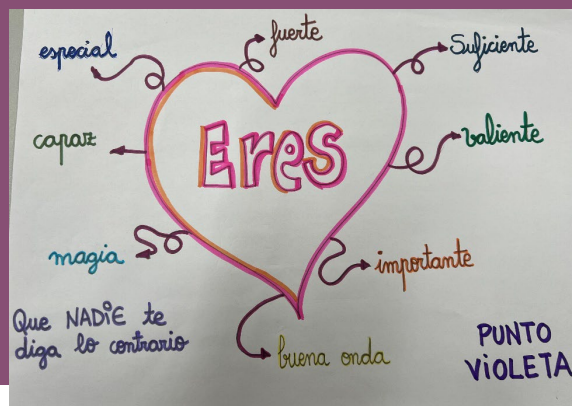 fuerte
especial
Suficiente
capaz
Eres
valiente
magia
importante
buena onda
Que NADiE te
diga lo contrario
PUNTO
ViOLETA